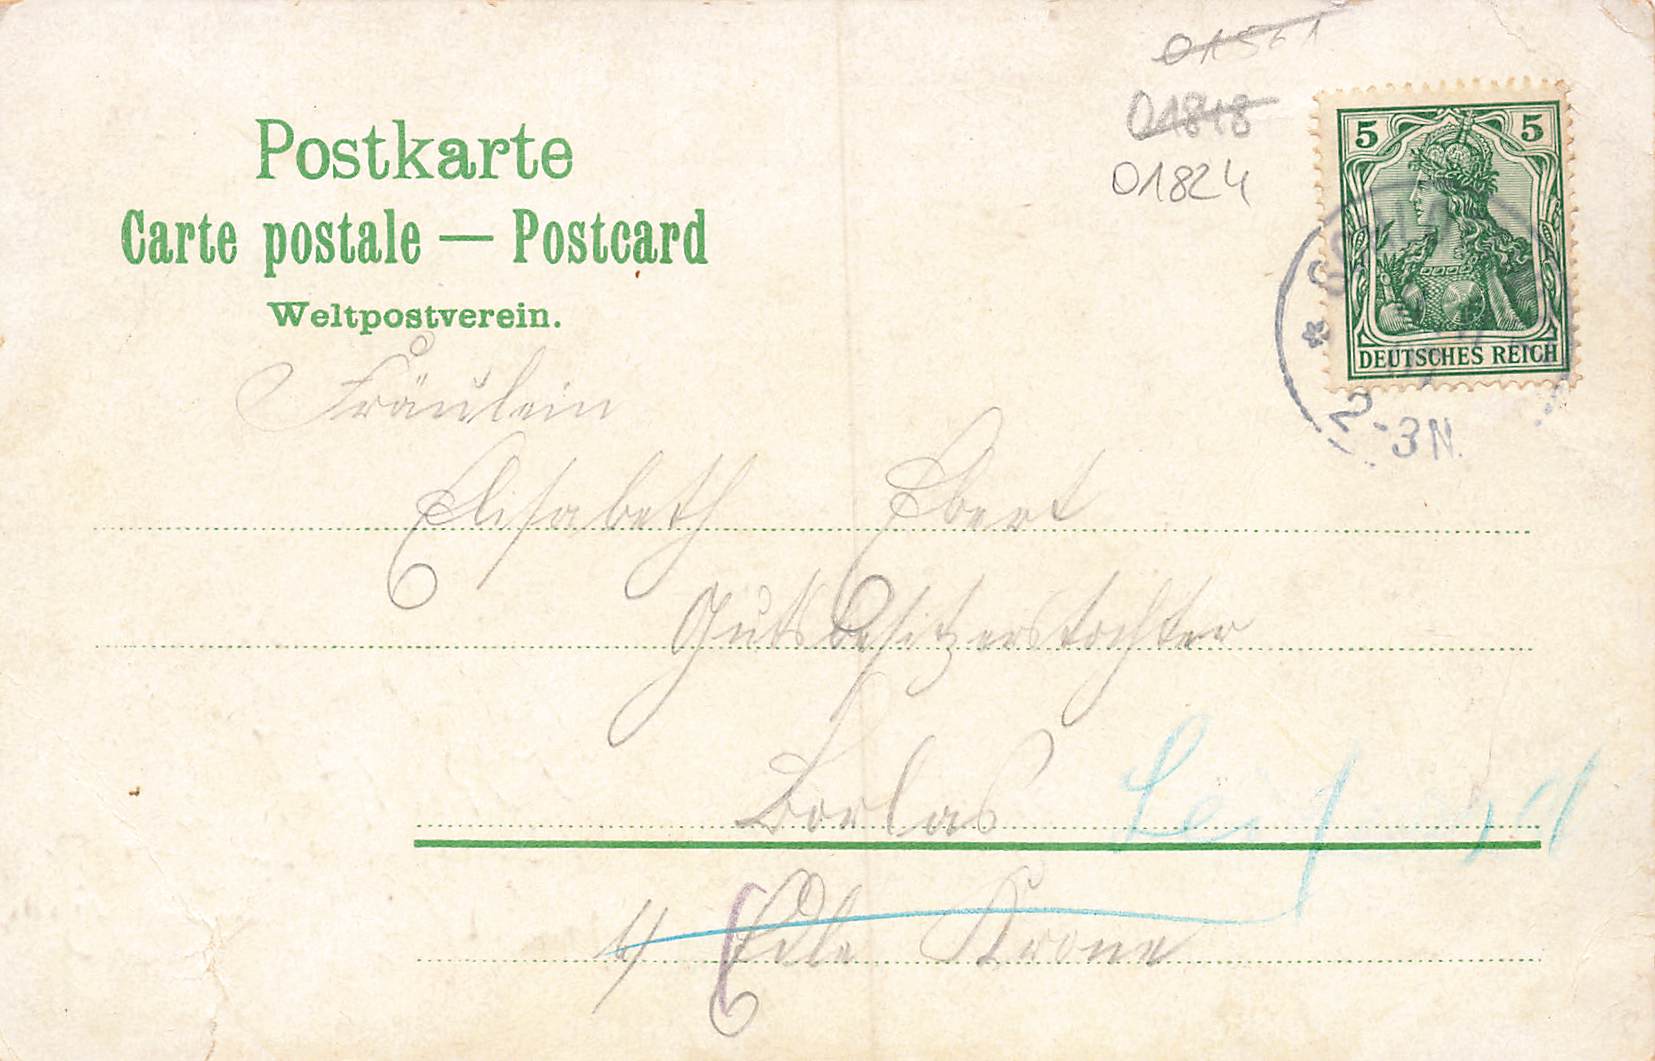 01561
01818
01824
Postkarte
Carte postale — Postcard
Weltpostverein.
5 5
DEUTSCHES REICH
2-3N.
Fräulein
Elisabeth Ebert
Gutsbesitzerstochter
Borlas
b/ Edle Krone